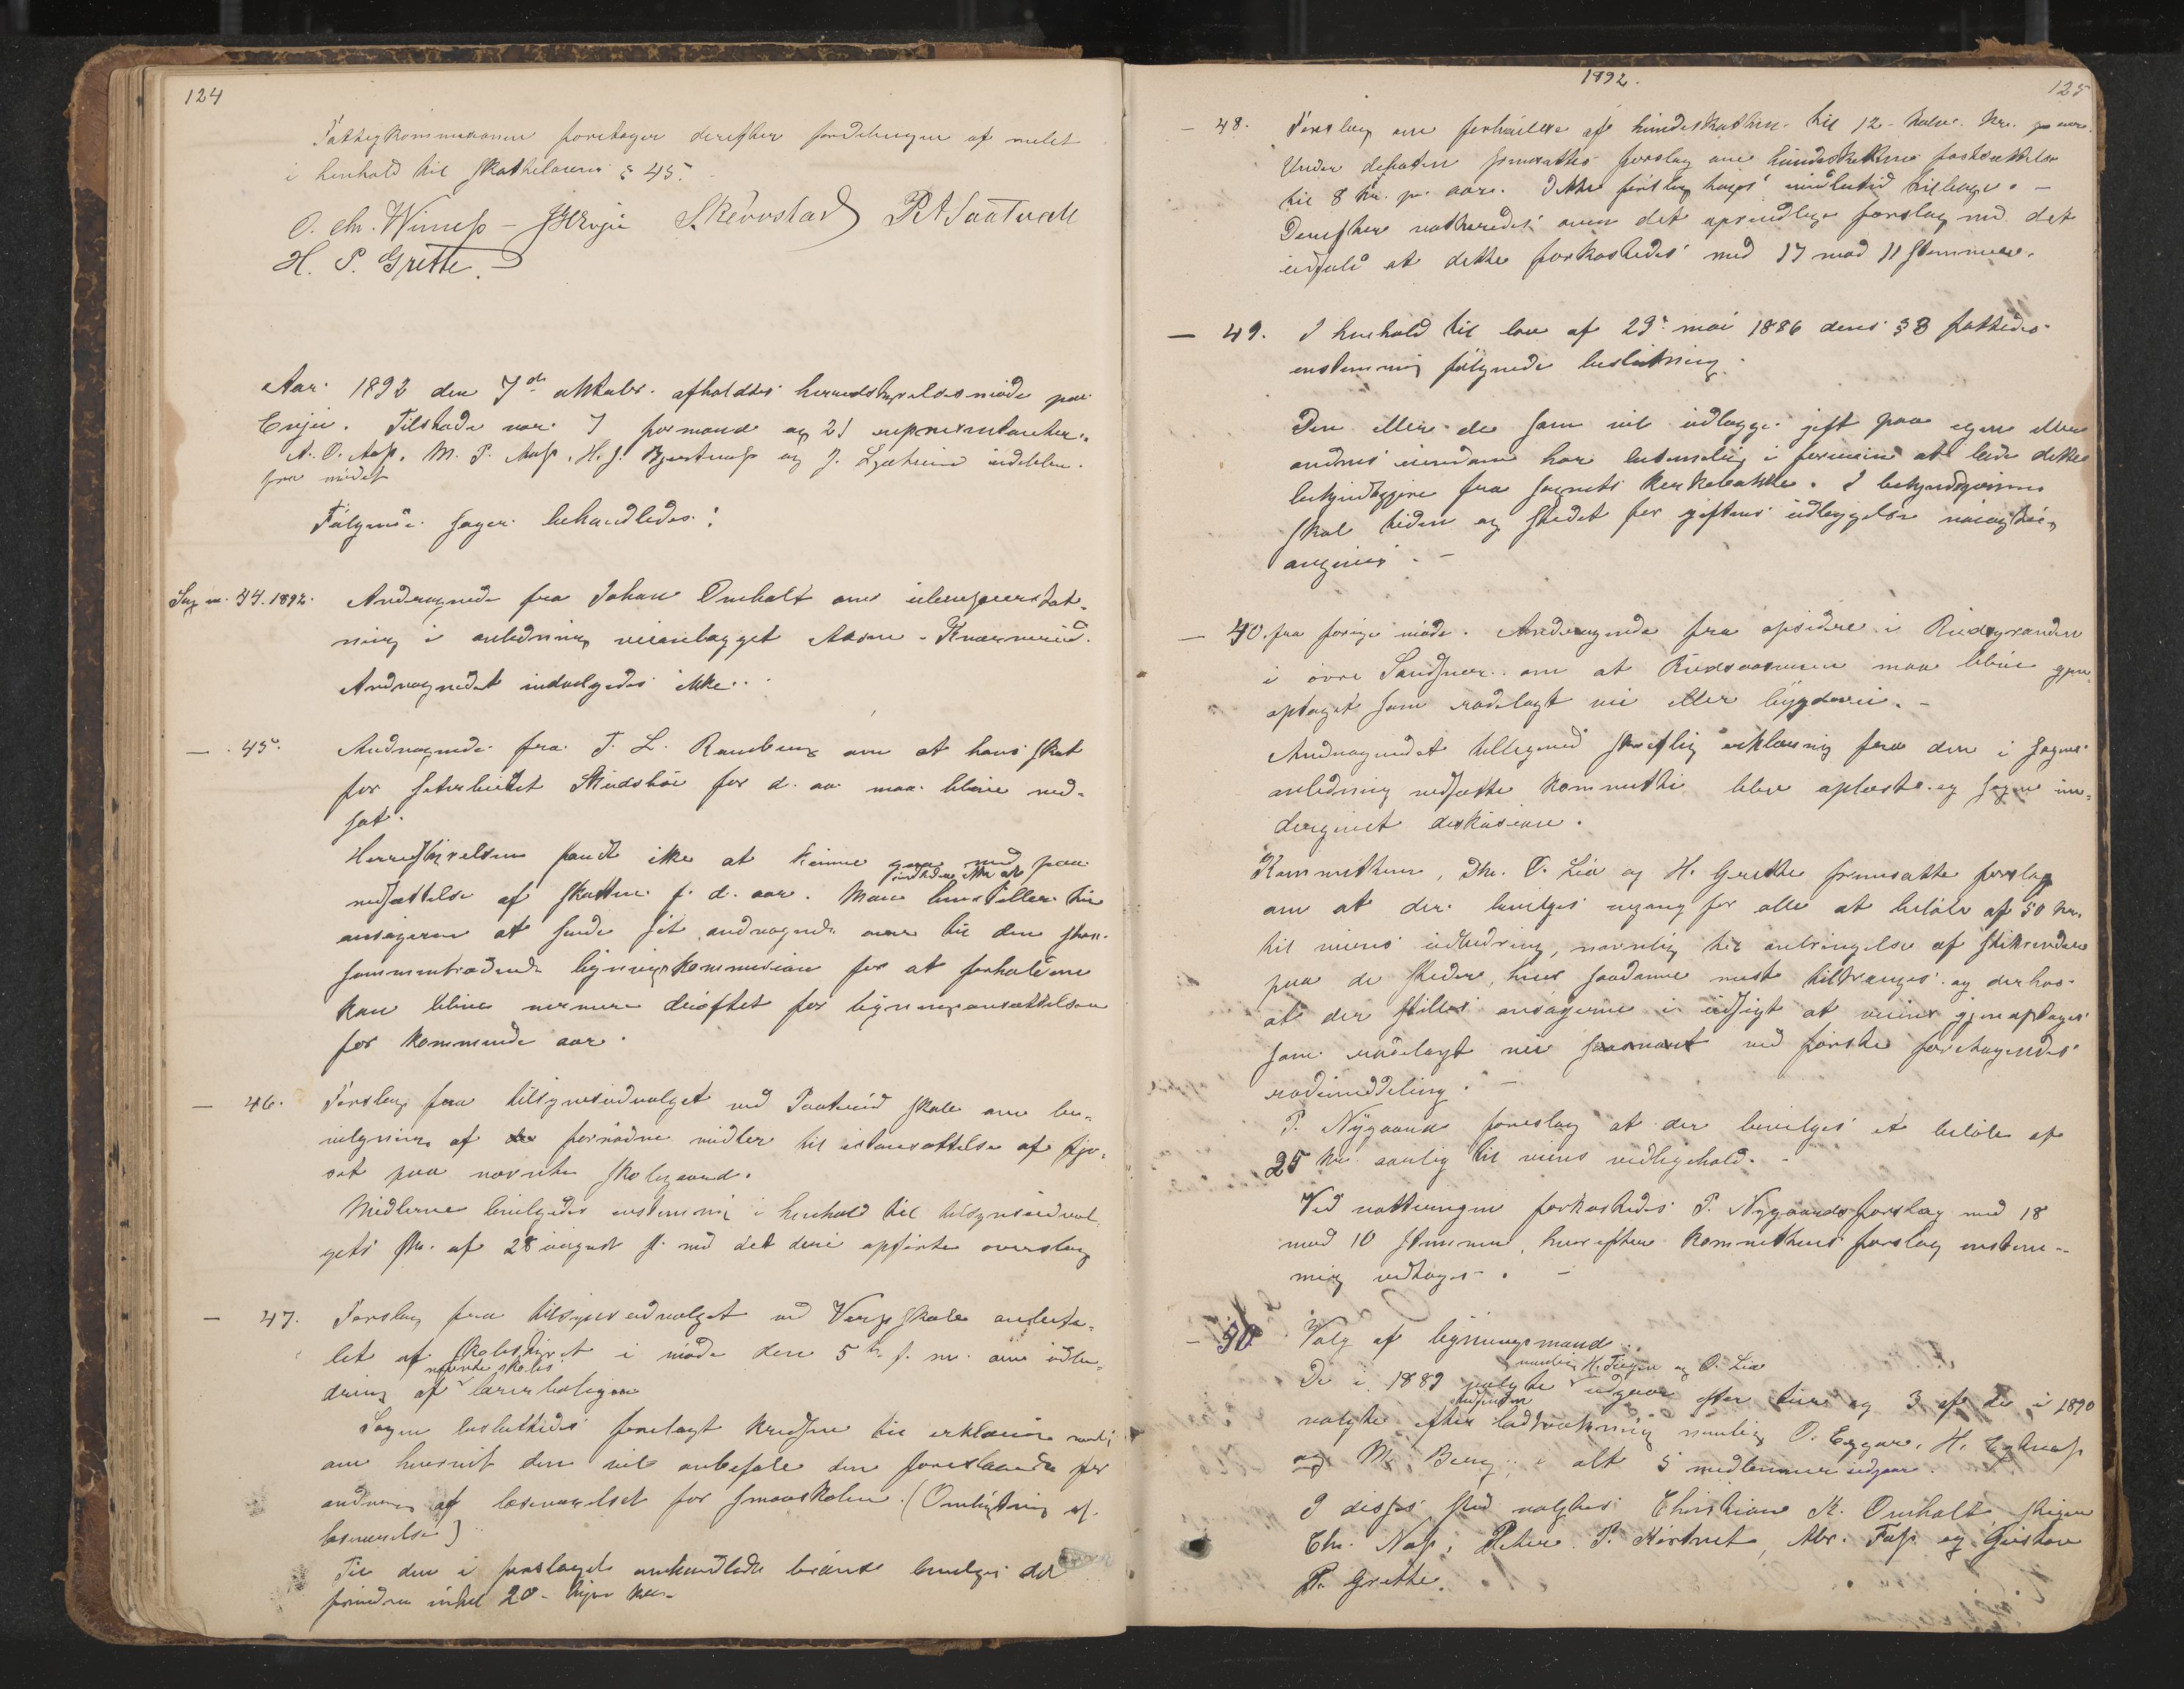 124
Fattigkommissionen foretager derefter fordelingen af melet
i henhold til skatteloven § 45.
O. Chr. Winness - Skèvrstad P. A. Saatvedt
H. P. Grette.
Aar 1892 den 7de oktober afholdtes herredstyrelsesmøde paa
Evju. Tilstede var 7 formænd og 21 repræsentanter.
A. O. Aasp. M. P. H. J. og J.
fra mødet
Følgende sager behandledes:
Sag nr. 44. 1892. Andragende fra Johan Omholt om ulempeerstat-
ning i anledning veianlægget Aasen - Kværneid.
Andragendet indvilgedes ikke.
— 45. Andragende fra T. L. Ramberg om at hans skat
for sæterbeitet Skudsbøe for d. aa. maa blive ned-
sat.
Herredstyrelsen fandt ikke at kunne gaa med paa
nedsættelse af skatten f. d. aar. Man henstiller til
ansøgeren at sende sit andragende over til den
sammentrædende ligningskommission for at forholdene
kan blive nærmere drøftet før ligningsansættelsen
for kommende aar.
— 46. Forslag fra tilsynsudvalget ved skole om be-
vilgning af fornødne midler til istandsættelse af fjø-
set paa nævnte skolegaard.
Midlerne bevilgedes enstemmig i henhold til tilsynsudval-
gets skr. af 28 august d. med det deri opførte overslag
— 47. Forslag fra tilsynsudvalget ved skole anbefa-
let af skolestyret i møde den 5te f. m. om udbe-
dring af nævnte skoles lærerbolig
Sagen besluttedes forelagt kredsen til erklæring
om hvorvidt den vil anbefale den foreslaaede for-
andring af læseværelset for smaaskolen. (Ombytning af
læseværelse)
Til den i forslaget omhandlede brønd bevilges det
fornødne indtil 20 - tyve kr. -
1892.
125
— 48. Forslag om forhøielse af hundeskatten til 12 - tolv kr. pr aar.
Under debatten fremsattes forslag om hundeskattens fastsættelse
til 8 kr. pr. aar. Dette forslag toges imidlertid tilbage. —
Derefter votteredes over det oprindelige forslag med det
udfald at dette forkastedes med 17 mod 11 stemmer.
— 49. I henhold til lov af 29de mai 1886 dens § 3 fattedes
enstemmig følgende beslutning.
Den eller de som vil udlægge gift paa egen eller
andres eiendom har betimelig i forveien at lade dette
bekjendtgjøre fra sognets kirkebakke. I bekjendtgjørelsen
skal tiden og stedet for giftens udlæggelse nøiagtig
angives. —
— 40. fra forrige møde. Andragende fra opsiddere i Riisgranden
i øvre Sandsvær om at maa blive gjen-
optaget som rodelagt vei eller bygdevei. —
Andragendet tilligemed skriftlig erklæring fra den i sagens
anledning nedsatte kommitte blev oplæste og sagen un-
dergivet diskussion.
Kommitteen, Dhr. O. Lia og H. Grette fremsatte forslag
om at der bevilges engang for alle et beløb af 50 kr.
til veiens udbedring, navnlig til anbringelse af stikrender
paa de steder, hvor saadanne mest tiltrænges og derhos
at der stilles ansøgerne i udsigt at veien gjenoptages
som rodelagt vei saasnart ved første foretagendes
rodeinddeling. —
P. Nygaard foreslog at der bevilges et beløb af
25 kr. aarlig til veiens vedligehold. —
Ved votteringen forkastedes P. Nygaards forslag med 18
mod 10 stemmer, hvorefter kommitteens forslag enstem-
mig vedtages. —
— 50. Valg af ligningsmænd.
De i 1889 valgte navnlig H. Teigen og O. Lia udgaar efter tur og 3 af de i 1890
valgte efter lodtrækning nemlig O. Eggar, H.
og M. Berg, i alt 5 medlemmer udgaar.
I disses sted valgtes Christian K. Omholt,
Chr. Peter P. Abr. og Gustav
P. Grette.